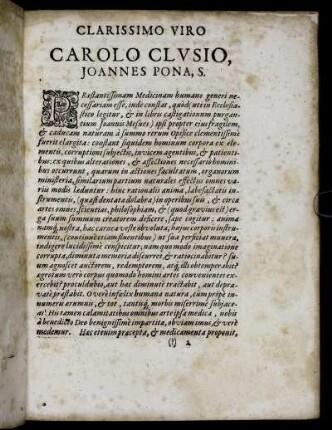 CLARISSIMO VIRO
CAROLO CLVSIO,
JOANNES PONA, S.
PRæstantissimam Medicinam humano generi ne-
cessariam esse, inde constat, quòd (ut ex in Ecclesia-
stico legitur, & in libris castigationum purgan-
tium Joannis Mesues) ipsi propter ejus fragilem,
& caducam naturam à summo rerum Opifice clementissimè
fuerit elargita: constant siquidem hominum corpora ex ele-
mentis, corruptioni subjectis, invicem agentibus, & patienti-
bus: ex quibus alterationes, & affectiones necessariò homini-
bus occurrunt, quarum in actiones facultatum, organorum
ministeria, similariumque partium naturales effectus omnes va-
riis modis leduntur: hinc rationalis anima, labefactatis in-
strumentis, (quasi dentata dolabra) in operibus suis, & circa
artes omnes, scientias, philosophiam, & (quod gravius est) er-
ga suum summum creatorem desicere, sæpe cogitur: anima
namque nostra, hac caruca veste obvoluta, hujus corporis instrumen-
tis, (continuè etiam fluentibus) ut sua perficiat munera,
indiget: cujus modi conspicitur, nam quo modo imaginatione
corrupta, diminuta memoria discurret, & ratiocinabitur? su-
um agnoscet auctorem, redemptorem, atque illi obtemperabit? aut
ægrotum verò corpus quomodo homini artes convenientes ex-
ercebit? proculdubio, aut hac diminutè tractabit, aut depra-
vatè præstabit. O verè infelix humana natura, cum prope in-
numeris ærumnis, & tot, tantisque morbis miserrimè subjace-
as! His tamen calamitatibus omnibus arte ipsa medica, nobis
à benedicto Deo benignissimè impartita, obviam imus, & verè
medemur. Hæc etenim præcepta, & medicamenta proponit,
(†) 2